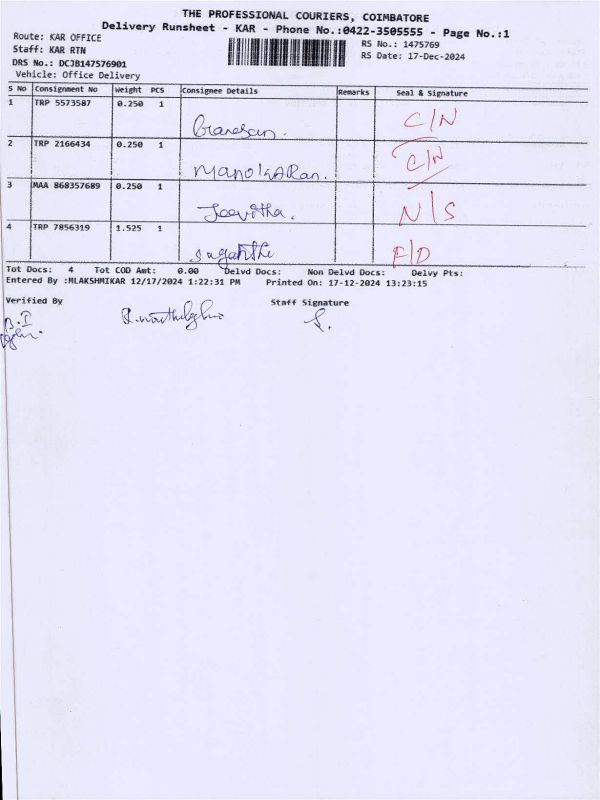 THE PROFESSIONAL COURIERS, COIMBATORE
Delivery Runsheet - KAR - Phone No.:0422-3505555 - Page No.:1
Route: KAR OFFICE
RS No.: 1475769
Staff: KAR RTN
RS Date: 17-Dec-2024
DRS No.: DCJB147576901
Vehicle: Office Delivery
S No Consignment No Weight PCS Consignee Details Remarks Seal & Signature
1 TRP 5573587 0.250 1
Ganesan. C/N
2 TRP 2166434 0.250 1
manokaRan. C/N
3 MAA 868357689 0.250 1
Jeevitha. N/S
4 TRP 7856319 1.525 1
F/D
Tot Docs: 4 Tot COD Amt: 0.00 Delvd Docs: Non Delvd Docs: Delvy Pts:
Entered By :MLAKSHMIKAR 12/17/2024 1:22:31 PM Printed On: 17-12-2024 13:23:15
Verified By Staff Signature